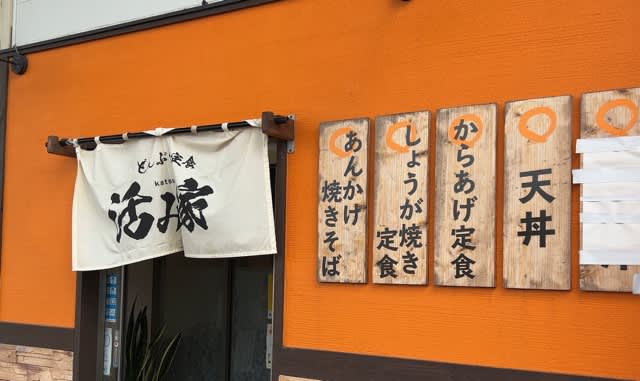 どんぶり定食
katsu
活み家
あんかけ
焼きそば
しょうが焼き
定食
からあげ定食
天丼